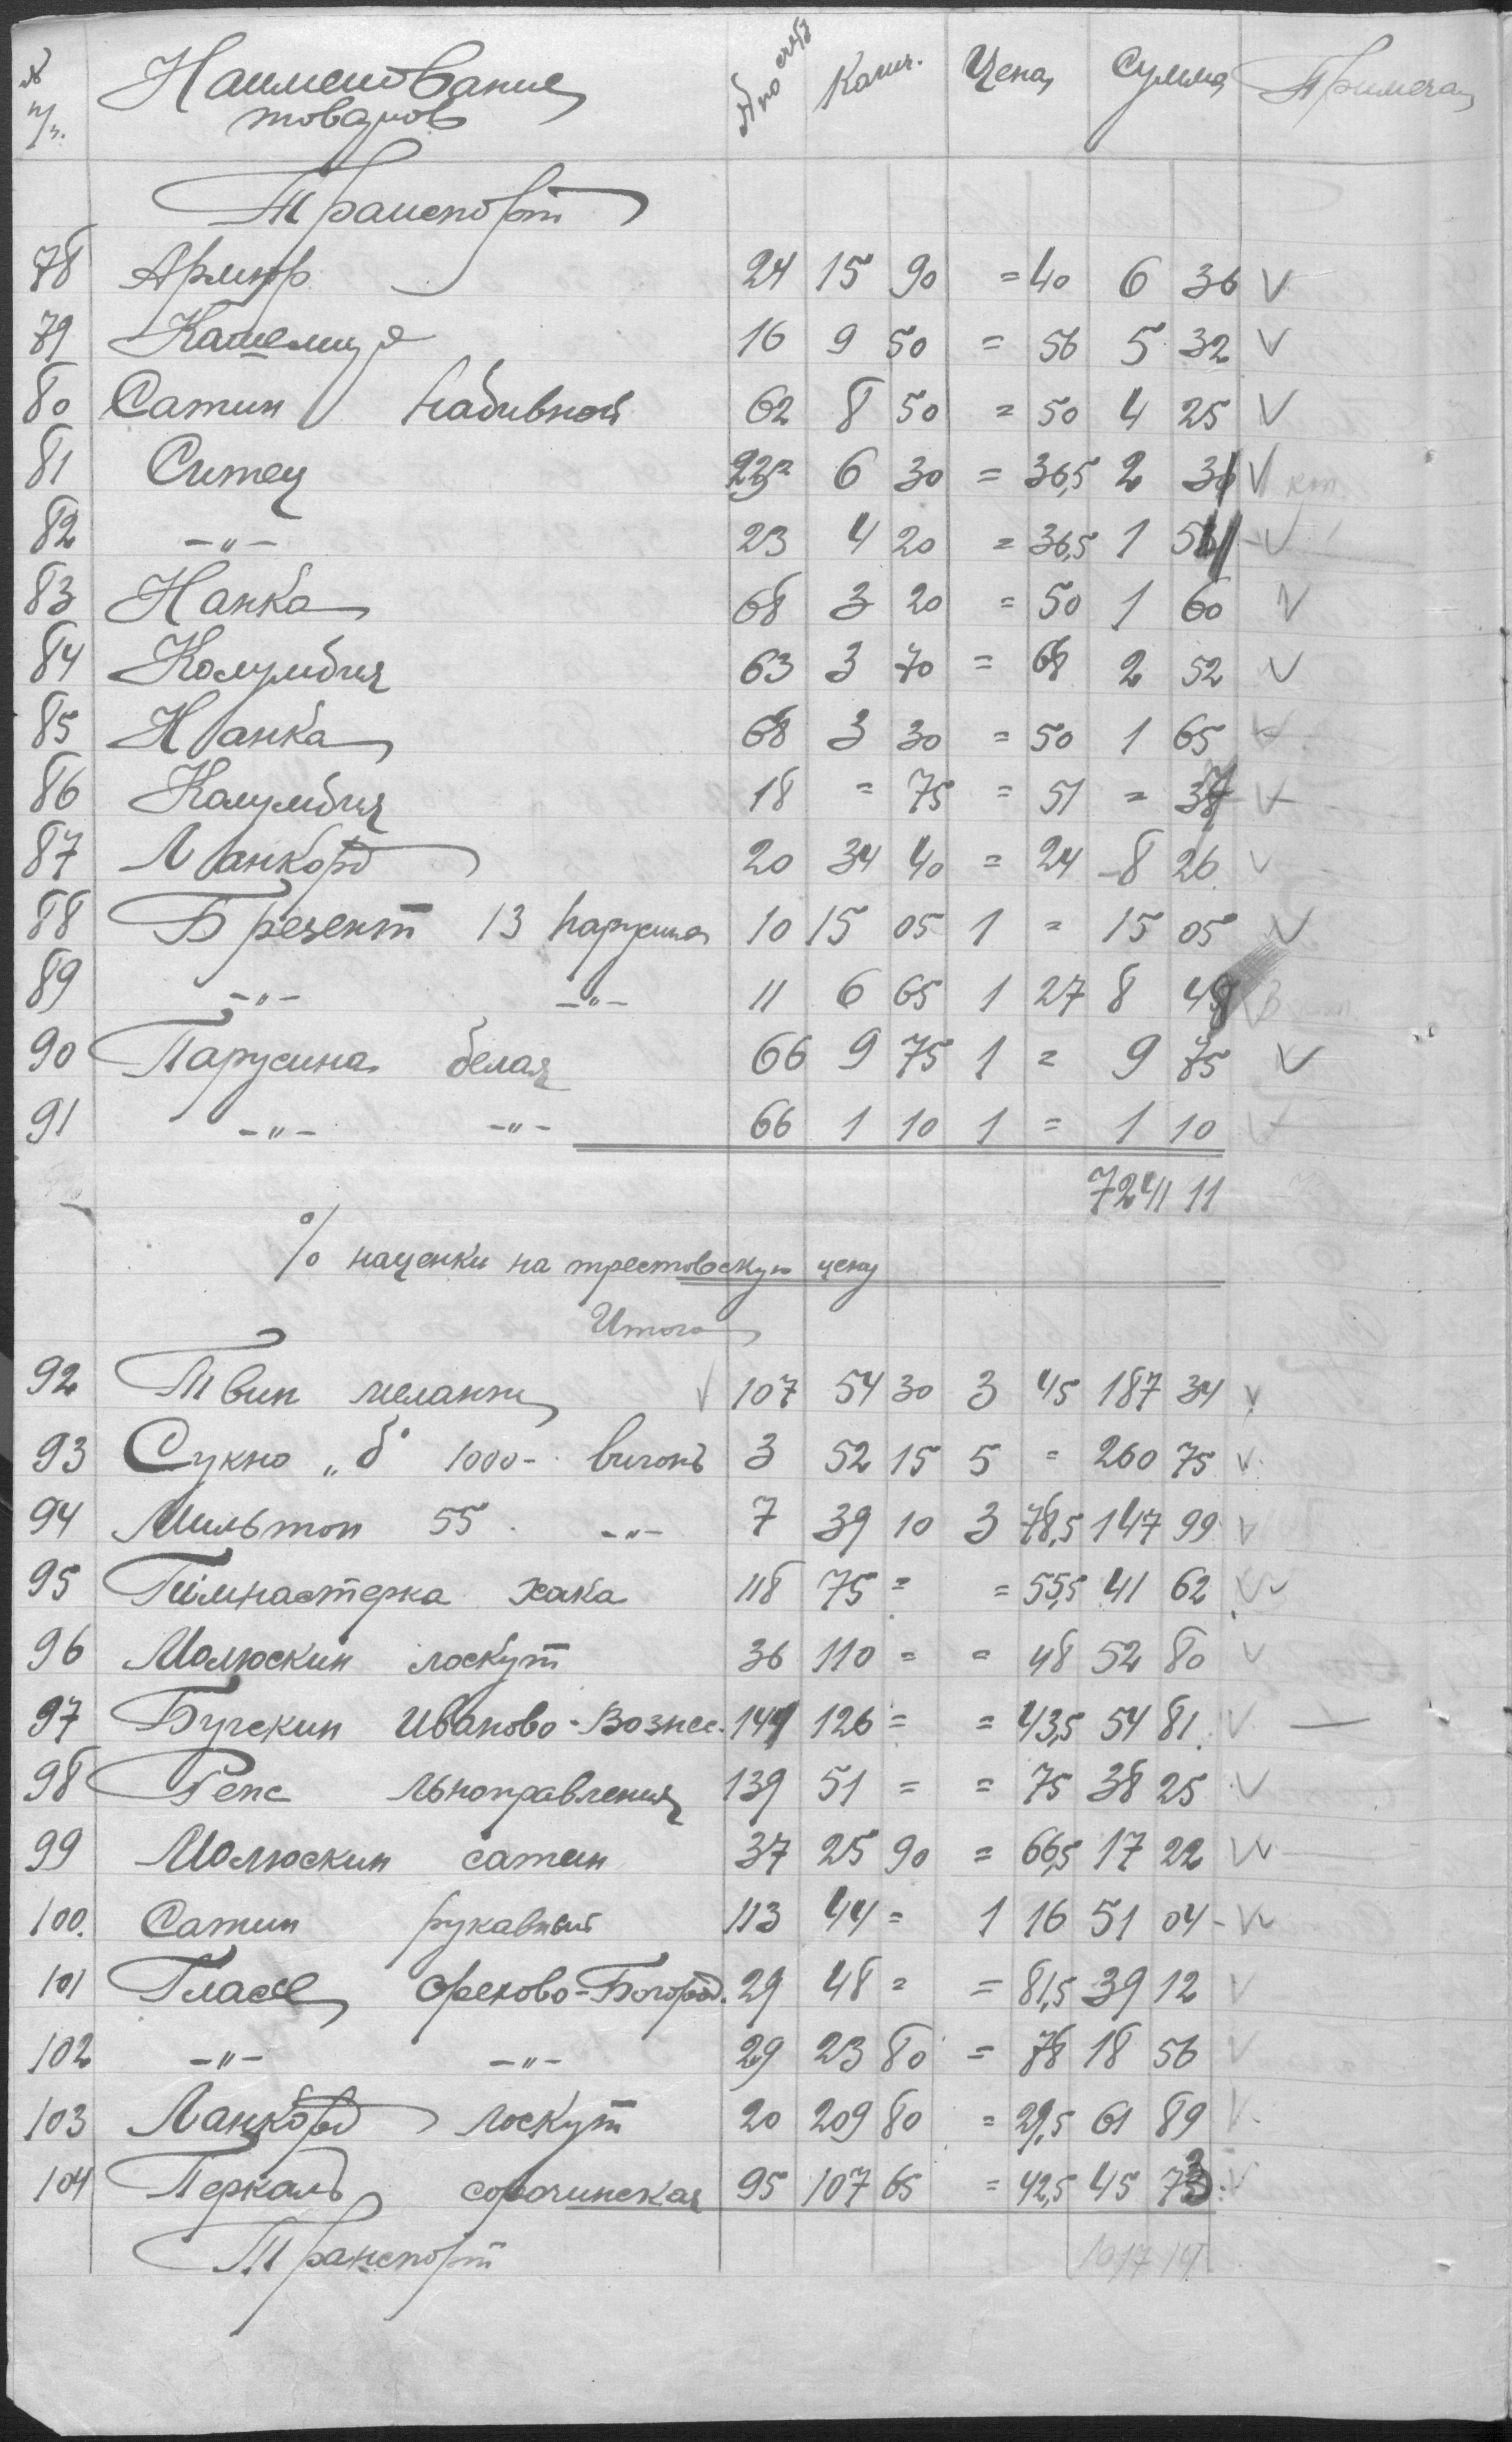 № п/п. Наименование товаров № по счету Колич. Цена Сумма Примечан
Транспорт
78 Армюр 24 15 90 = 40 6 36 V
79 Кашемир 16 9 50 = 56 5 32 V
80 Сатин набивной 62 8 50 = 50 4 25 V
81 Ситец 6 30 = 36,5 2 V коп.
82 -"- 23 4 20 = 36,5 1 V
83 Нанка 68 3 20 = 50 1 60 V
84 Колумбия 63 3 70 = 68 2 52 V
85 Нанка 68 3 30 = 50 1 65 V
86 Колумбия 18 = 75 = 51 = V
87 Ланкорд 20 34 40 = 24 8 26 V
88 Брезент 13 парусина 10 15 05 1 = 15 05 V
89 -"- -"- 11 6 65 1 27 8 V
90 Парусина белая 66 9 75 1 = 9 75 V
91 -"- -"- 66 1 10 1 = 1 10 V
7241 11
% наценки на трестовскую цену
Итого
92 Твин меланж V 107 54 30 3 45 187 34 V
93 Сукно „б" 1000- вигонь 3 52 15 5 = 260 75 V
94 Мильтон 55 -"- 7 39 10 3 78,5 147 99 V
95 Гимнастерка хаки 118 75 = = 55,5 41 62 V
96 Молюскин лоскут 36 110 = = 48 52 80 V
97 Бугскин Иваново-Вознес. 144 126 = = 43,5 54 81 V —
98 Репс льноправления 139 51 = = 75 38 25 V
99 Молюскин сатин 37 25 90 = 66,5 17 22 V
100. Сатин рукавный 113 44 = 1 16 51 04 - V
101 Гласе Орехово-Богород. 29 48 = = 81,5 39 12 V
102 -"- -"- 29 23 80 = 78 18 56 V
103 Ланкорд лоскут 20 209 80 = 29,5 61 89 V
104 Перкаль сорочинская 95 107 65 = 42,5 45 73 V
Транспорт 1017